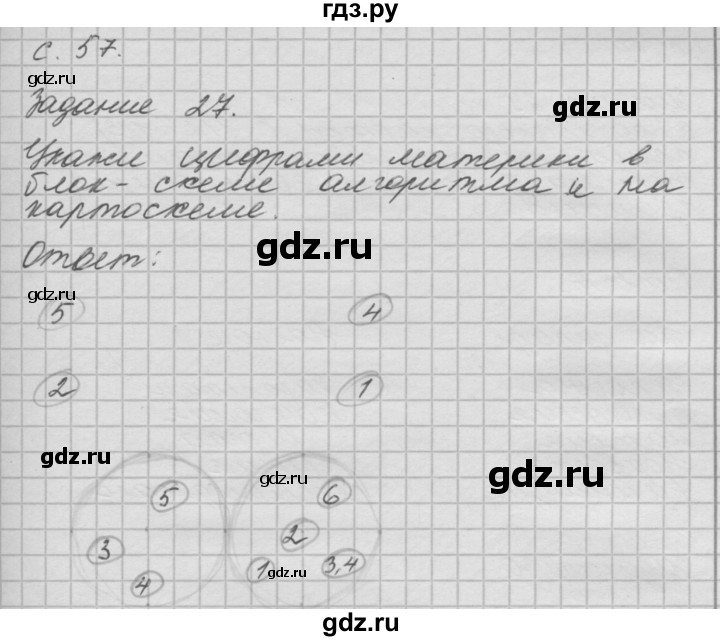 гдз.ру
с. 57.
gdz.ru
Задание 27.
gdz.ru
Укажи цифрами материки в
блок-схеме алгоритма и на
картосхеме.
gdz.ru
Ответ:
gdz.ru
5 4
2 1
gdz.ru
gdz.ru
gdz.ru
5 6
3 2
4 1 3,4
gdz.ru
gdz.ru